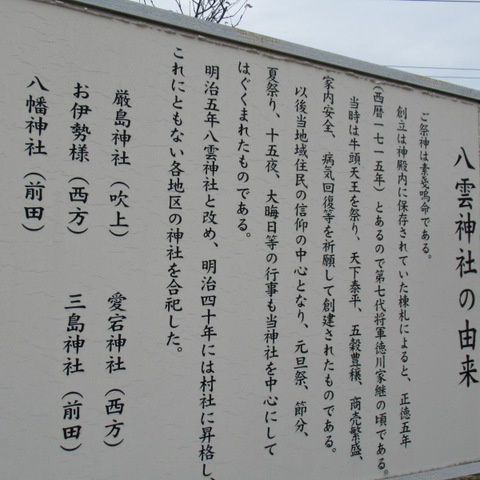 八雲神社の由来
ご祭神は素戔嗚命である。
創立は神殿内に保存されていた棟札によると、正徳五年
(西暦一七一五年)とあるので第七代将軍徳川家継の頃である。
当時は牛頭天王を祭り、天下泰平、五穀豊穣、商売繁盛、
家内安全、病気回復等を祈願して創建されたものである。
以後当地域住民の信仰の中心となり、元旦祭、節分、
夏祭り、十五夜、大晦日等の行事も当神社を中心にして
はぐくまれたものである。
明治五年八雲神社と改め、明治四十年には村社に昇格し、
これにともない各地区の神社を合祀した。
厳島神社(吹上) 愛宕神社(西方)
お伊勢様(西方) 三島神社(前田)
八幡神社(前田)